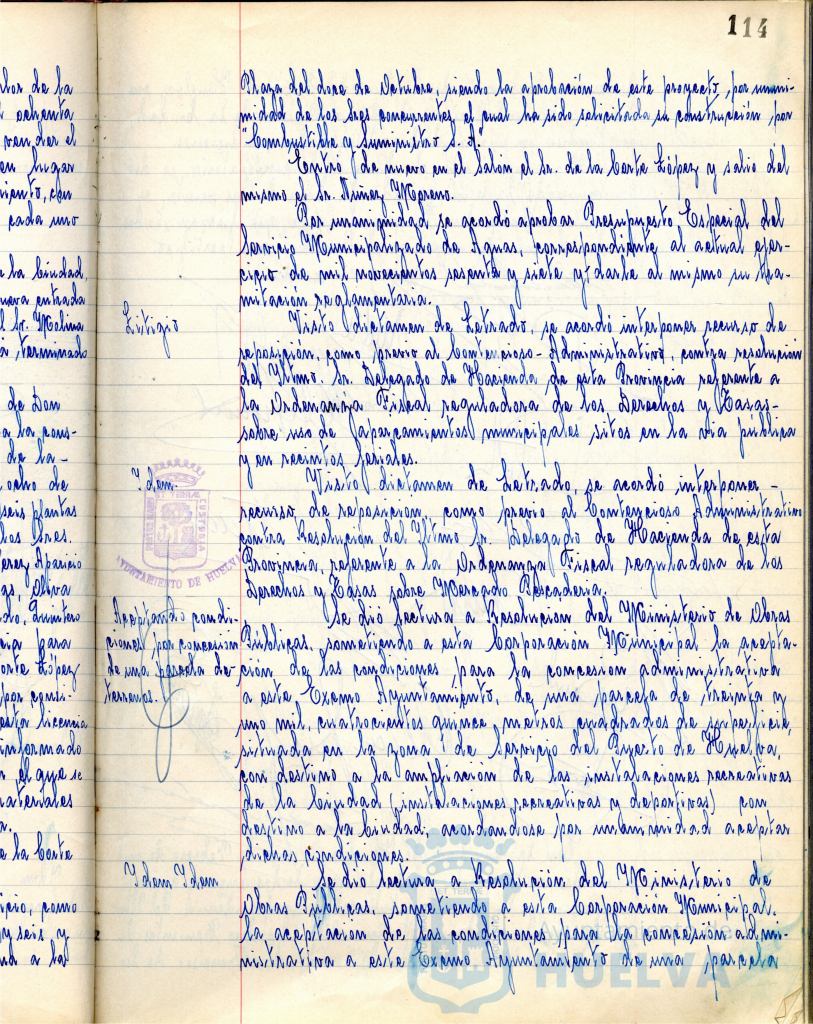 114
lor de la
ochenta
vender el
en lugar
miento, con
cada uno
a la Ciudad,
nueva entrada
l Sr. Molina
terminado
de Don
a la cons-
de la-
ocho de
seis plantas
los Sres.
Aparicio
Oliva
Quintero
cia para
orte López
por consi-
esta licencia
informado
el que se
materiales
e la Corte
icio, como
y seis y
a la
Plaza del doce de Octubre, siendo la aprobación de este proyecto, por unani-
midad de los Sres concurrentes, el cual ha sido solicitada su construcción, por
"Combustible y Suministro S. A."
Entró de nuevo en el Salón el Sr. de la Corte López y salió del
mismo el Sr. Núñez Moreno.
Por unanimidad se acordó aprobar Presupuesto Especial del
Servicio Municipalizado de Aguas, correspondiente al actual ejer-
cicio de mil novecientos sesenta y siete y darle al mismo su tra-
mitación reglamentaria.
Litigio
Visto dictamen de Letrado, se acordó interponer recurso de
reposición, como previo al Contencioso-Administrativo, contra resolución
del Iltmo. Sr. Delegado de Hacienda de esta Provincia referente a
la Ordenanza Fiscal reguladora de los Derechos y Tasas-
sobre uso de aparcamientos municipales sitos en la vía pública
y en recintos feriales.
Idem.
Visto dictamen de Letrado, se acordó interponer -
recurso de reposición, como previo al Contencioso Administrativo
contra Resolución del Iltmo Sr. Delegado de Hacienda de esta
Provincia, referente a la Ordenanza Fiscal reguladora de los
Derechos y Tasas sobre Mercado Pescadería.
AYUNTAMIENTO DE HUELVA
Aceptando condi-
ciones por concesión
de una parcela de
terrenos.
Se dió lectura a Resolución del Ministerio de Obras
Públicas, sometiendo a esta Corporación Municipal la acepta-
ción de las condiciones para la concesión administrativa
a este Excmo Ayuntamiento, de una parcela de treinta y
uno mil, cuatrocientos quince metros cuadrados de superficie,
situada en la zona de Servicio del Puerto de Huelva,
con destino a la ampliación de las instalaciones recreativas
de la Ciudad (instalaciones recreativas y deportivas) con
destino a la Ciudad, acordandose por unanimidad aceptar
dichas condiciones.
Idem Idem
Se dió lectura a Resolución del Ministerio de
Obras Públicas, sometiendo a esta Corporación Municipal,
la aceptación de las condiciones para la concesión admi-
nistrativa a este Excmo Ayuntamiento de una parcela
HUELVA